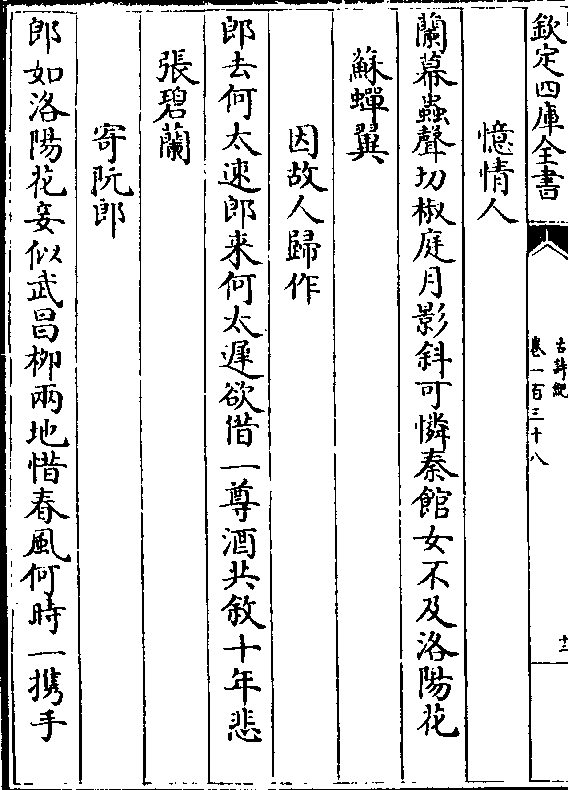 欽定四庫全書
古詩紀
卷一百三十八
憶情人
蘭幕蟲聲切椒庭月影斜可憐秦館女不及洛陽花
蘇蟬翼
因故人歸作
郎去何太速郎来何太遲欲借一尊酒共敘十年悲
張碧蘭
寄阮郎
郎如洛陽花妾似武昌柳兩地惜春風何時一攜手